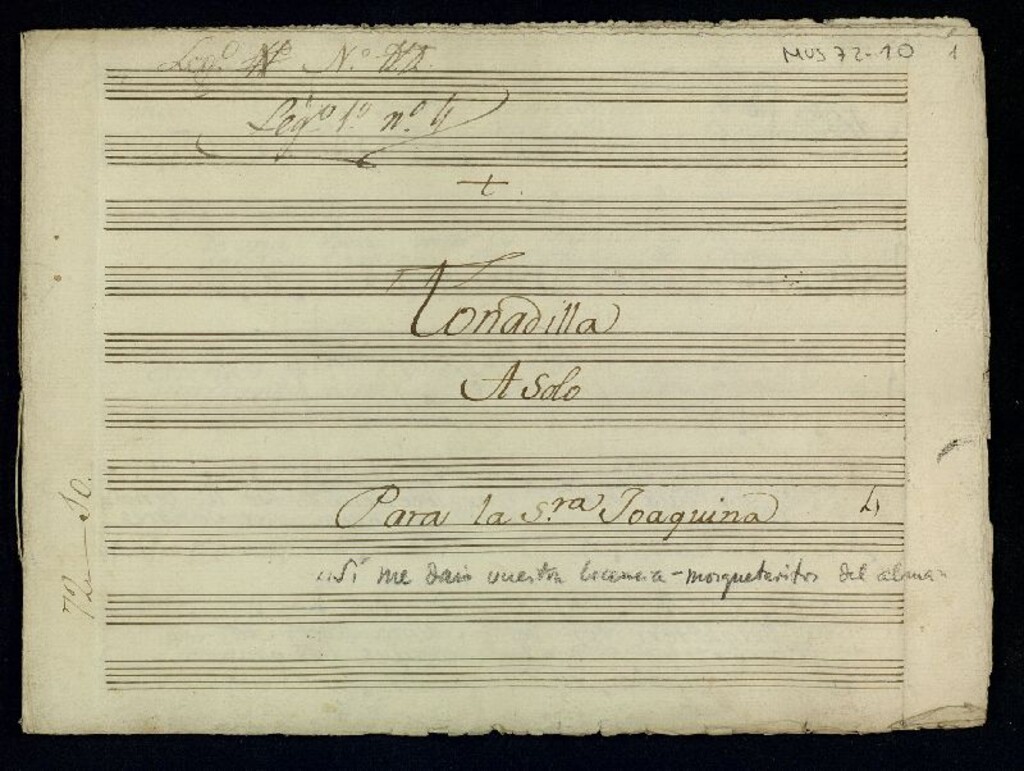 Leg.º Nº
MUS 72-10
1
Legº 1º nº 4
+
Tonadilla
A Solo
Para la S.ra Joaquina
4
"Si me dais vuestra licencia - mosqueteritos del alma"
72-10.